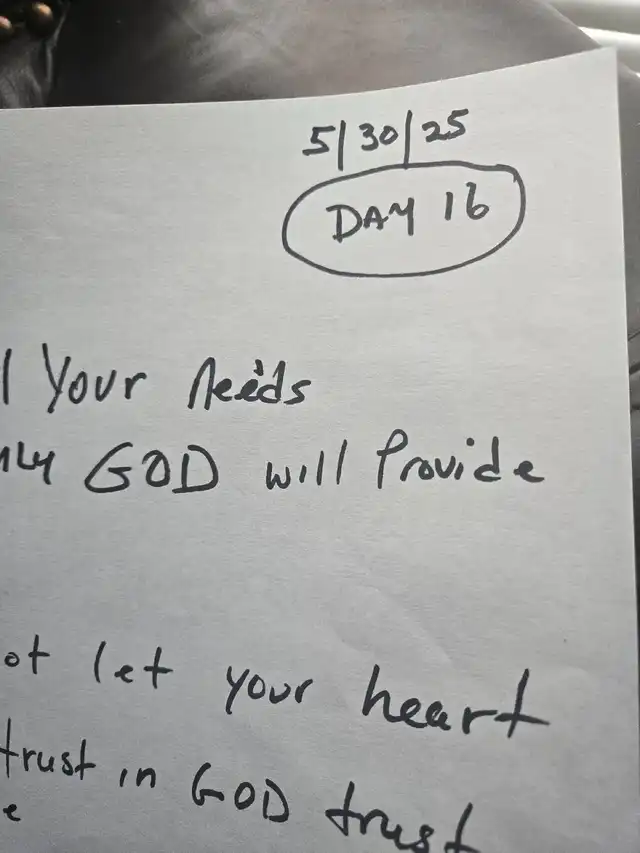 5/30/25
DAY 16
l Your Needs
nly GOD will Provide
ot let your heart
trust in GOD trust
e